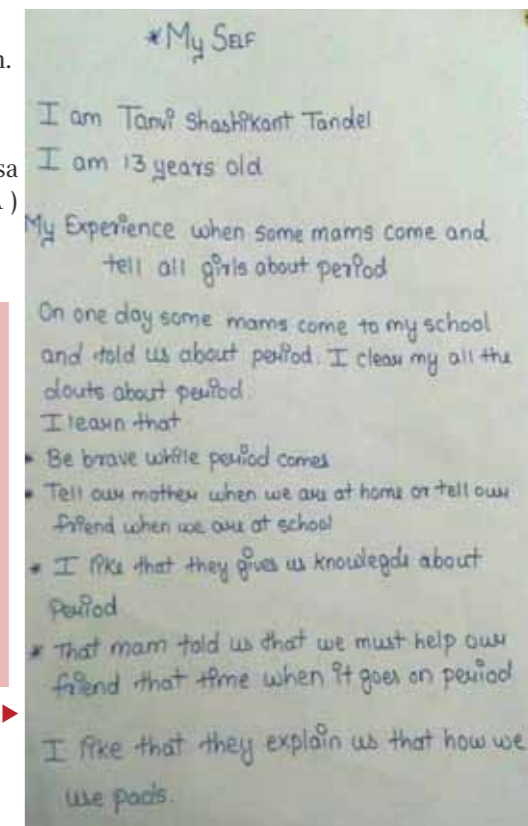 n.
sa
)
*My SELF
I am Tanvi Shashikant Tandel
I am 13 years old
My Experience when some mams come and
tell all girls about period
On one day some mams come to my school
and told us about period. I clear my all the
douts about period.
I learn that
• Be brave while period comes
• Tell our mother when we are at home or tell our
friend when we are at school
* I like that they gives us knowlegde about
Period
* That mam told us that we must help our
friend that time when it goes on period
I like that they explain us that how we
use pads.